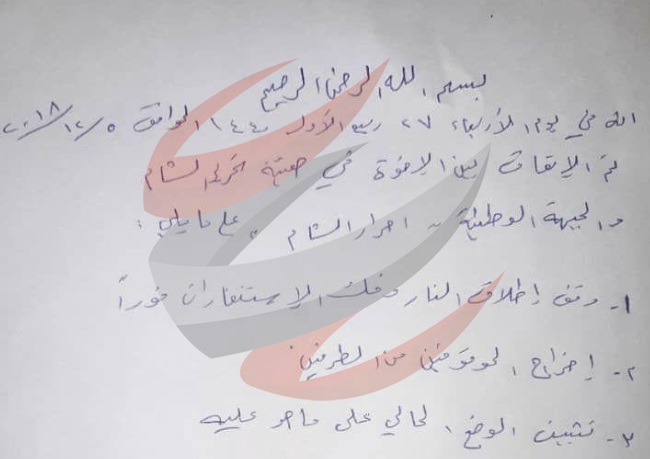 بسم الله الرحمن الرحيم
انه في يوم الأربعاء ٢٧ ربيع الأول ١٤٤٠ الموافق ٢٠١٨/١٢/٥
تم الإتفاق بين الإخوة في هيئة تحرير الشام
والجبهة الوطنية - احرار الشام - على ما يلي :
١- وقف إطلاق النار وفك الإستنفارات فوراً
٢- إخراج الموقوفين من الطرفين .
٣- تثبيت الوضع الحالي على ما هو عليه